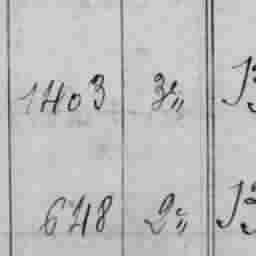 1403 3„ B
648 2„ B